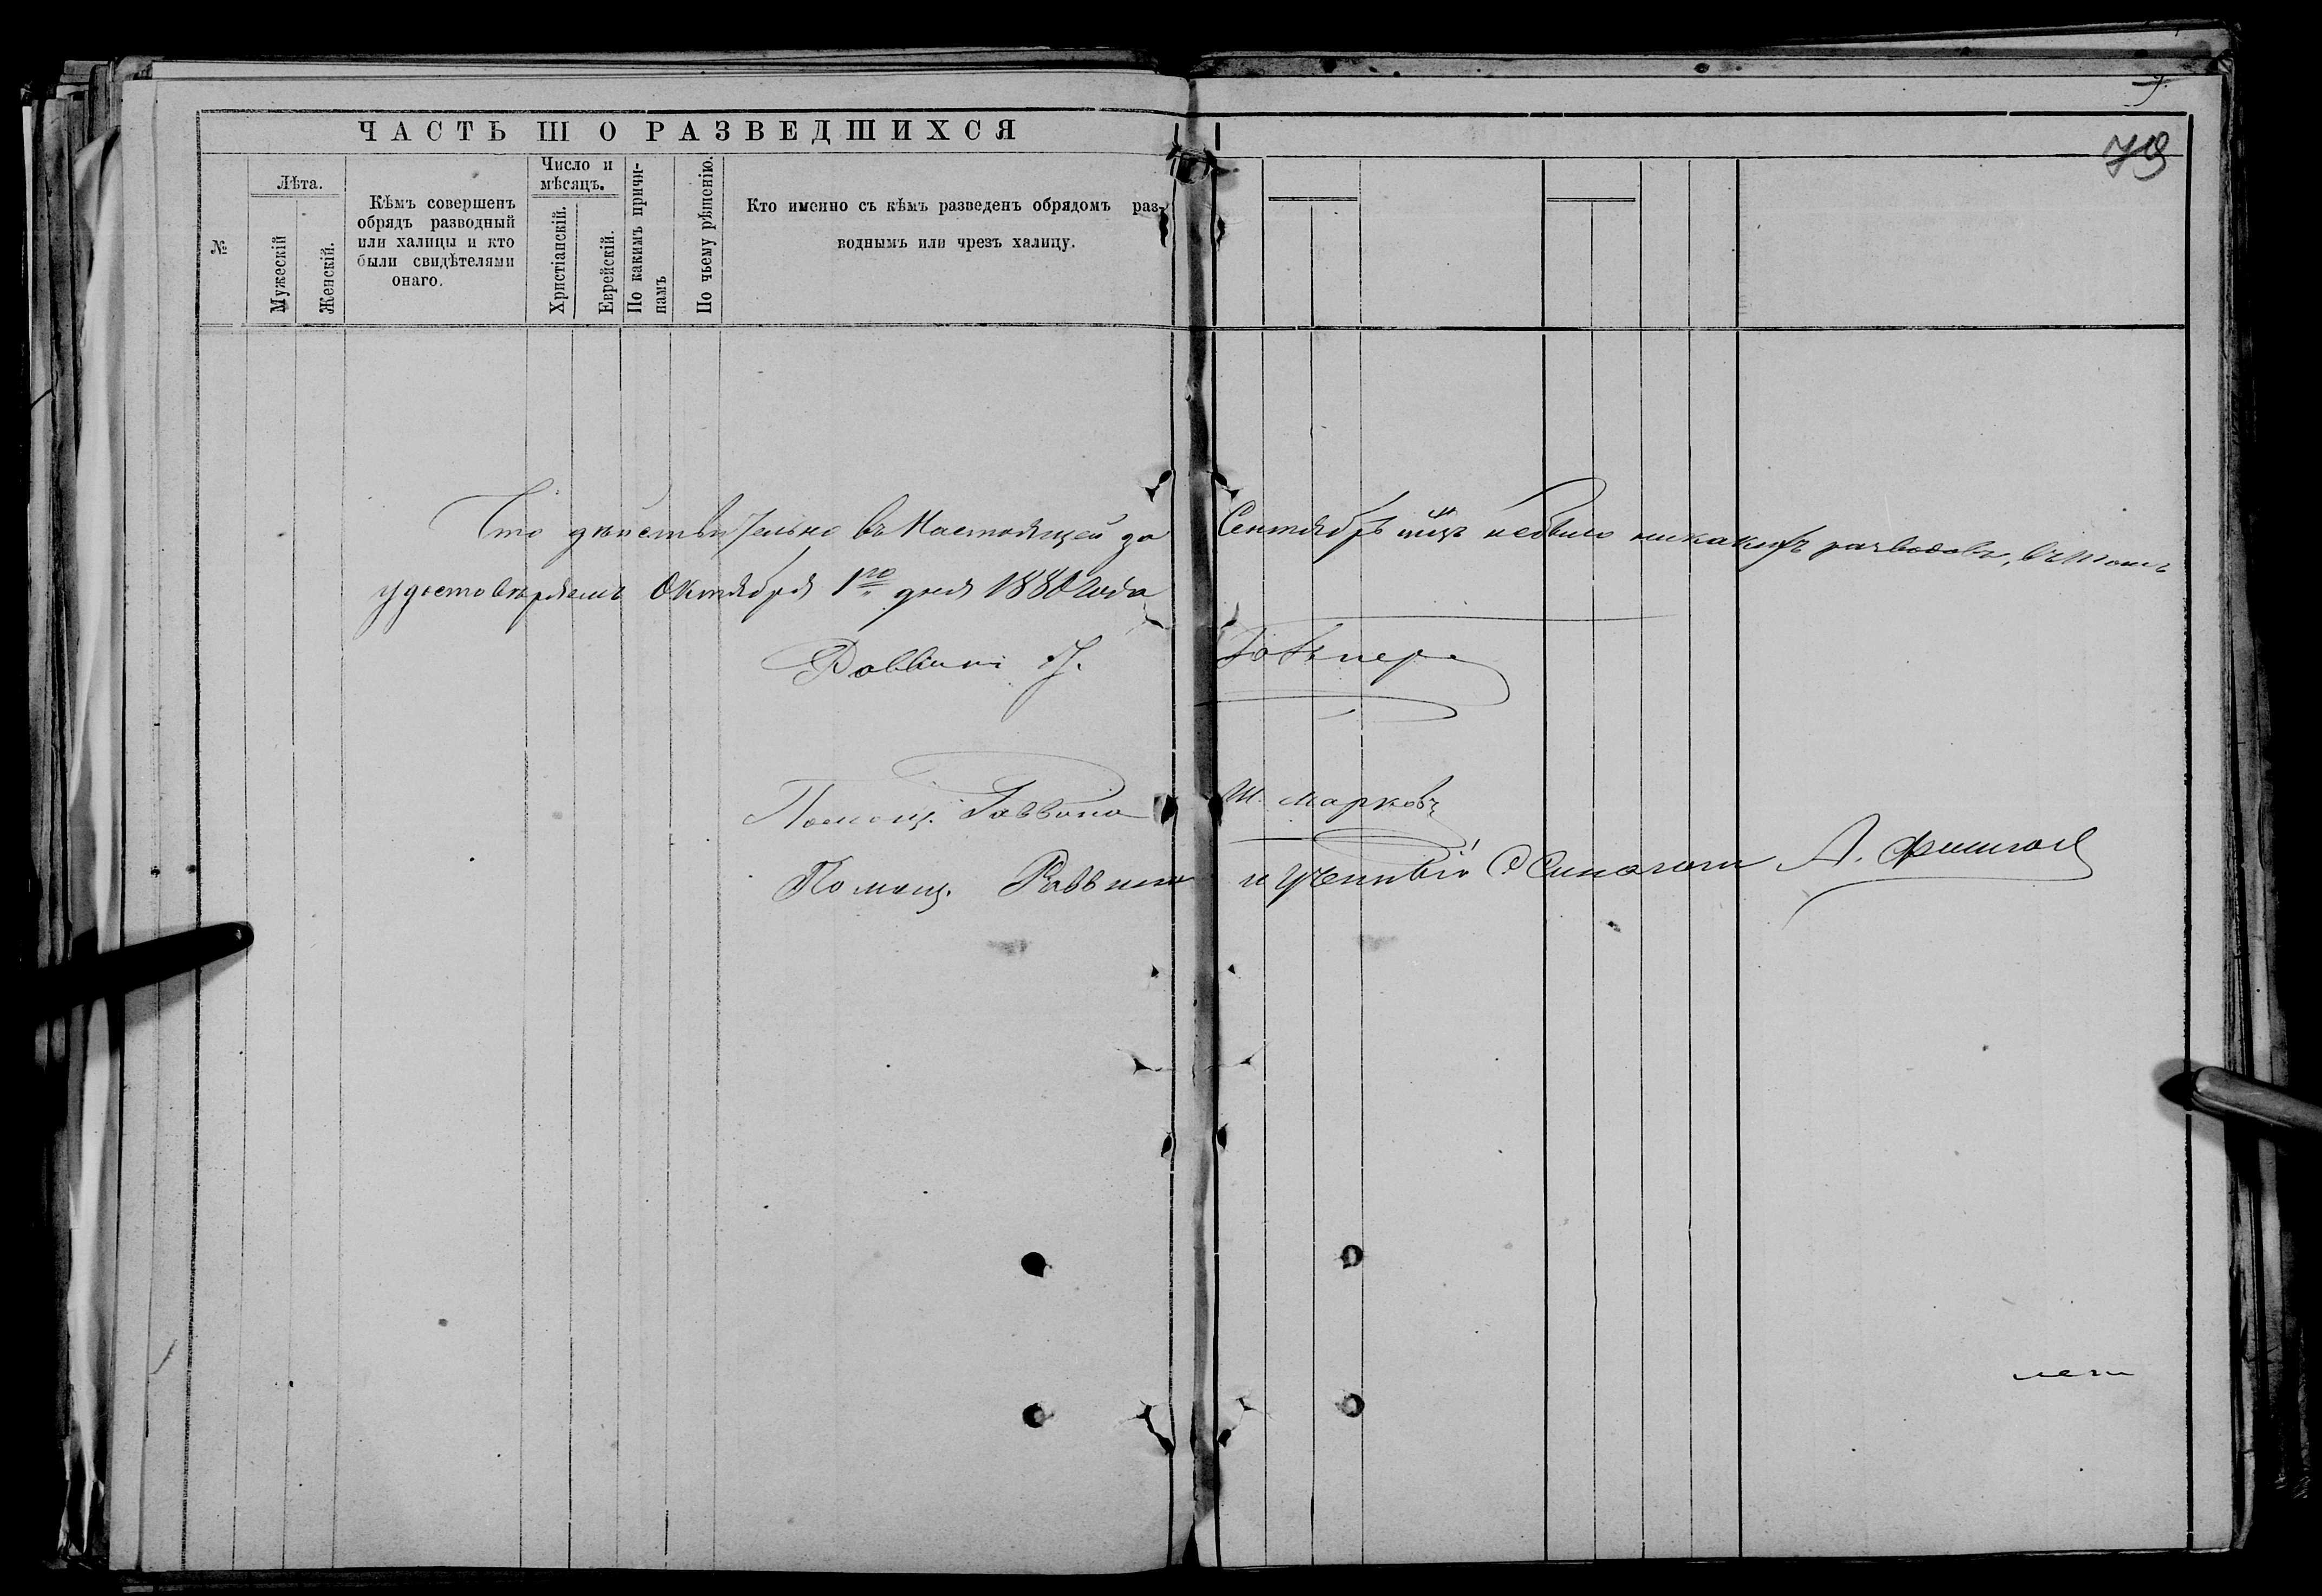 79
ЧАСТЬ III О РАЗВЕДШИХСЯ
№
Лѣта.
Мужескій
Женскій.
Кѣмъ совершенъ
обрядъ разводный
или халицы и кто
были свидѣтелями
онаго.
Число и
мѣсяцъ.
Христіанскій.
Еврейскій.
По какимъ причи-
намъ
По чьему рѣшенію.
Кто именно съ кѣмъ разведенъ обрядомъ раз-
воднымъ или чрезъ халицу.
Что дѣйствительно въ Настоящей за Сентябрь мц҃ъ небыло никакихъ разводовъ, въ томъ
удостовѣряемъ Октября 1го дня 1880 года
Раввинъ
Помощ. Раввина Ш. Марковъ
Помощ. Раввина и Ученный Синагоги А. Фишгоф